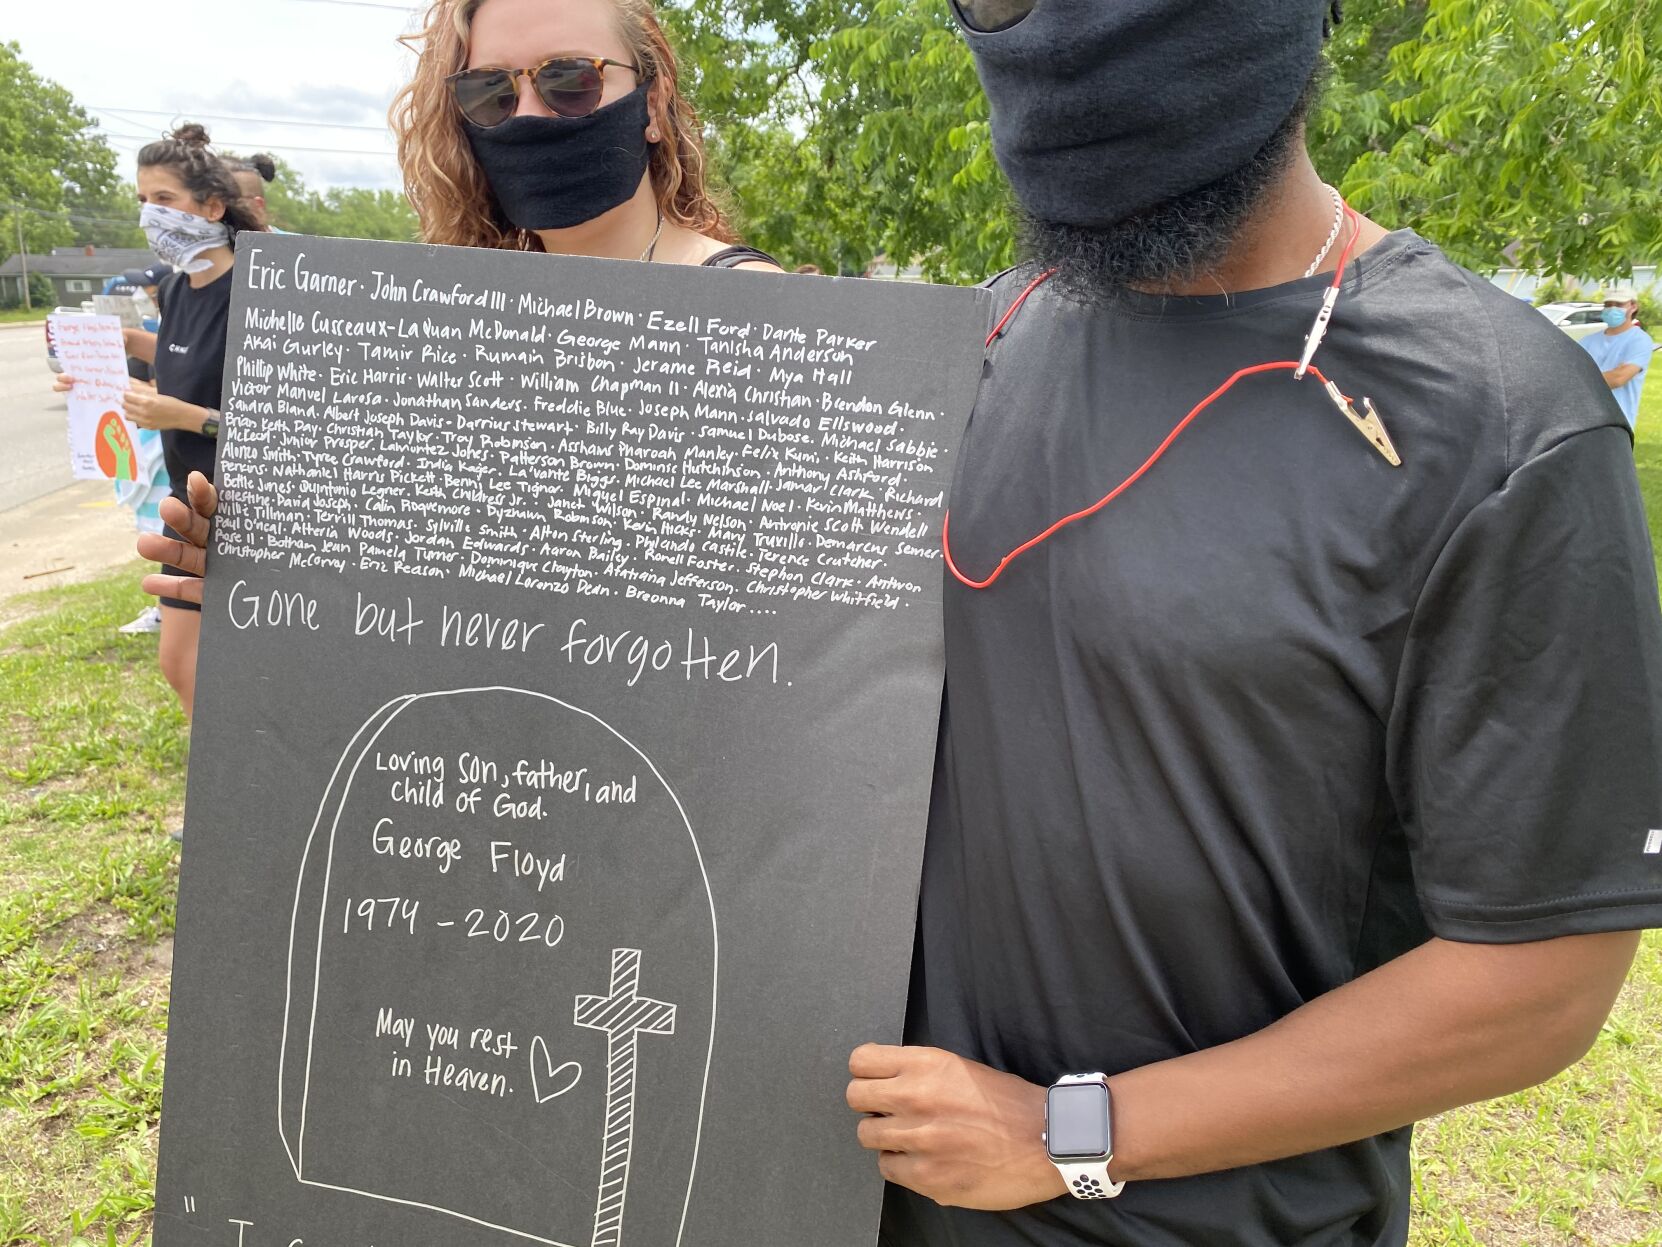 Eric Garner · John Crawford III · Michael Brown · Ezell Ford · Dante Parker
Michelle Cusseaux - Laquan McDonald · George Mann · Tanisha Anderson
Akai Gurley · Tamir Rice · Rumain Brisbon · Jerame Reid · Mya Hall
Phillip White · Eric Harris · Walter Scott · William Chapman II · Alexia Christian · Brendon Glenn ·
Victor Manuel Larosa · Jonathan Sanders · Freddie Blue · Joseph Mann · Salvado Ellswood ·
Sandra Bland · Albert Joseph Davis - Darrius Stewart · Billy Ray Davis · Samuel Dubose · Michael Sabbie ·
Brian Keith Day · Christian Taylor · Troy Robinson · Asshams Pharoah Manley · Felix Kumi · Keith Harrison
McLeod · Junior Prosper · Lamontez Jones · Patterson Brown · Dominic Hutchinson · Anthony Ashford ·
Alonzo Smith · Tyree Crawford · India Kager · La'vante Biggs · Michael Lee Marshall · Jamar Clark · Richard
Perkins · Nathaniel Harris Pickett · Benni Lee Tignor · Miguel Espinal · Michael Noel · Kevin Matthews ·
Bettie Jones · Quintonio Legrier · Keith Childress Jr. · Janet Wilson · Randy Nelson · Antronie Scott Wendell
Celestine · David Joseph · Calin Roquemore · Dyzhawn Robinson · Kevin Hicks · Mary Truxillo · Demarcus Semer ·
Willie Tillman · Terrill Thomas · Sylville Smith · Alton Sterling · Philando Castile · Terence Crutcher ·
Paul O'neal · Alteria Woods · Jordan Edwards · Aaron Bailey · Ronell Foster · Stephon Clark · Antwon
Rose II · Botham Jean Pamela Turner · Dominique Clayton · Atatiana Jefferson · Christopher Whitfield ·
Christopher McCorvey · Eric Reason · Michael Lorenzo Dean · Breonna Taylor ....
Gone but never forgotten.
Loving son, father, and
child of God.
George Floyd
1974 - 2020
May you rest
in Heaven.
" I